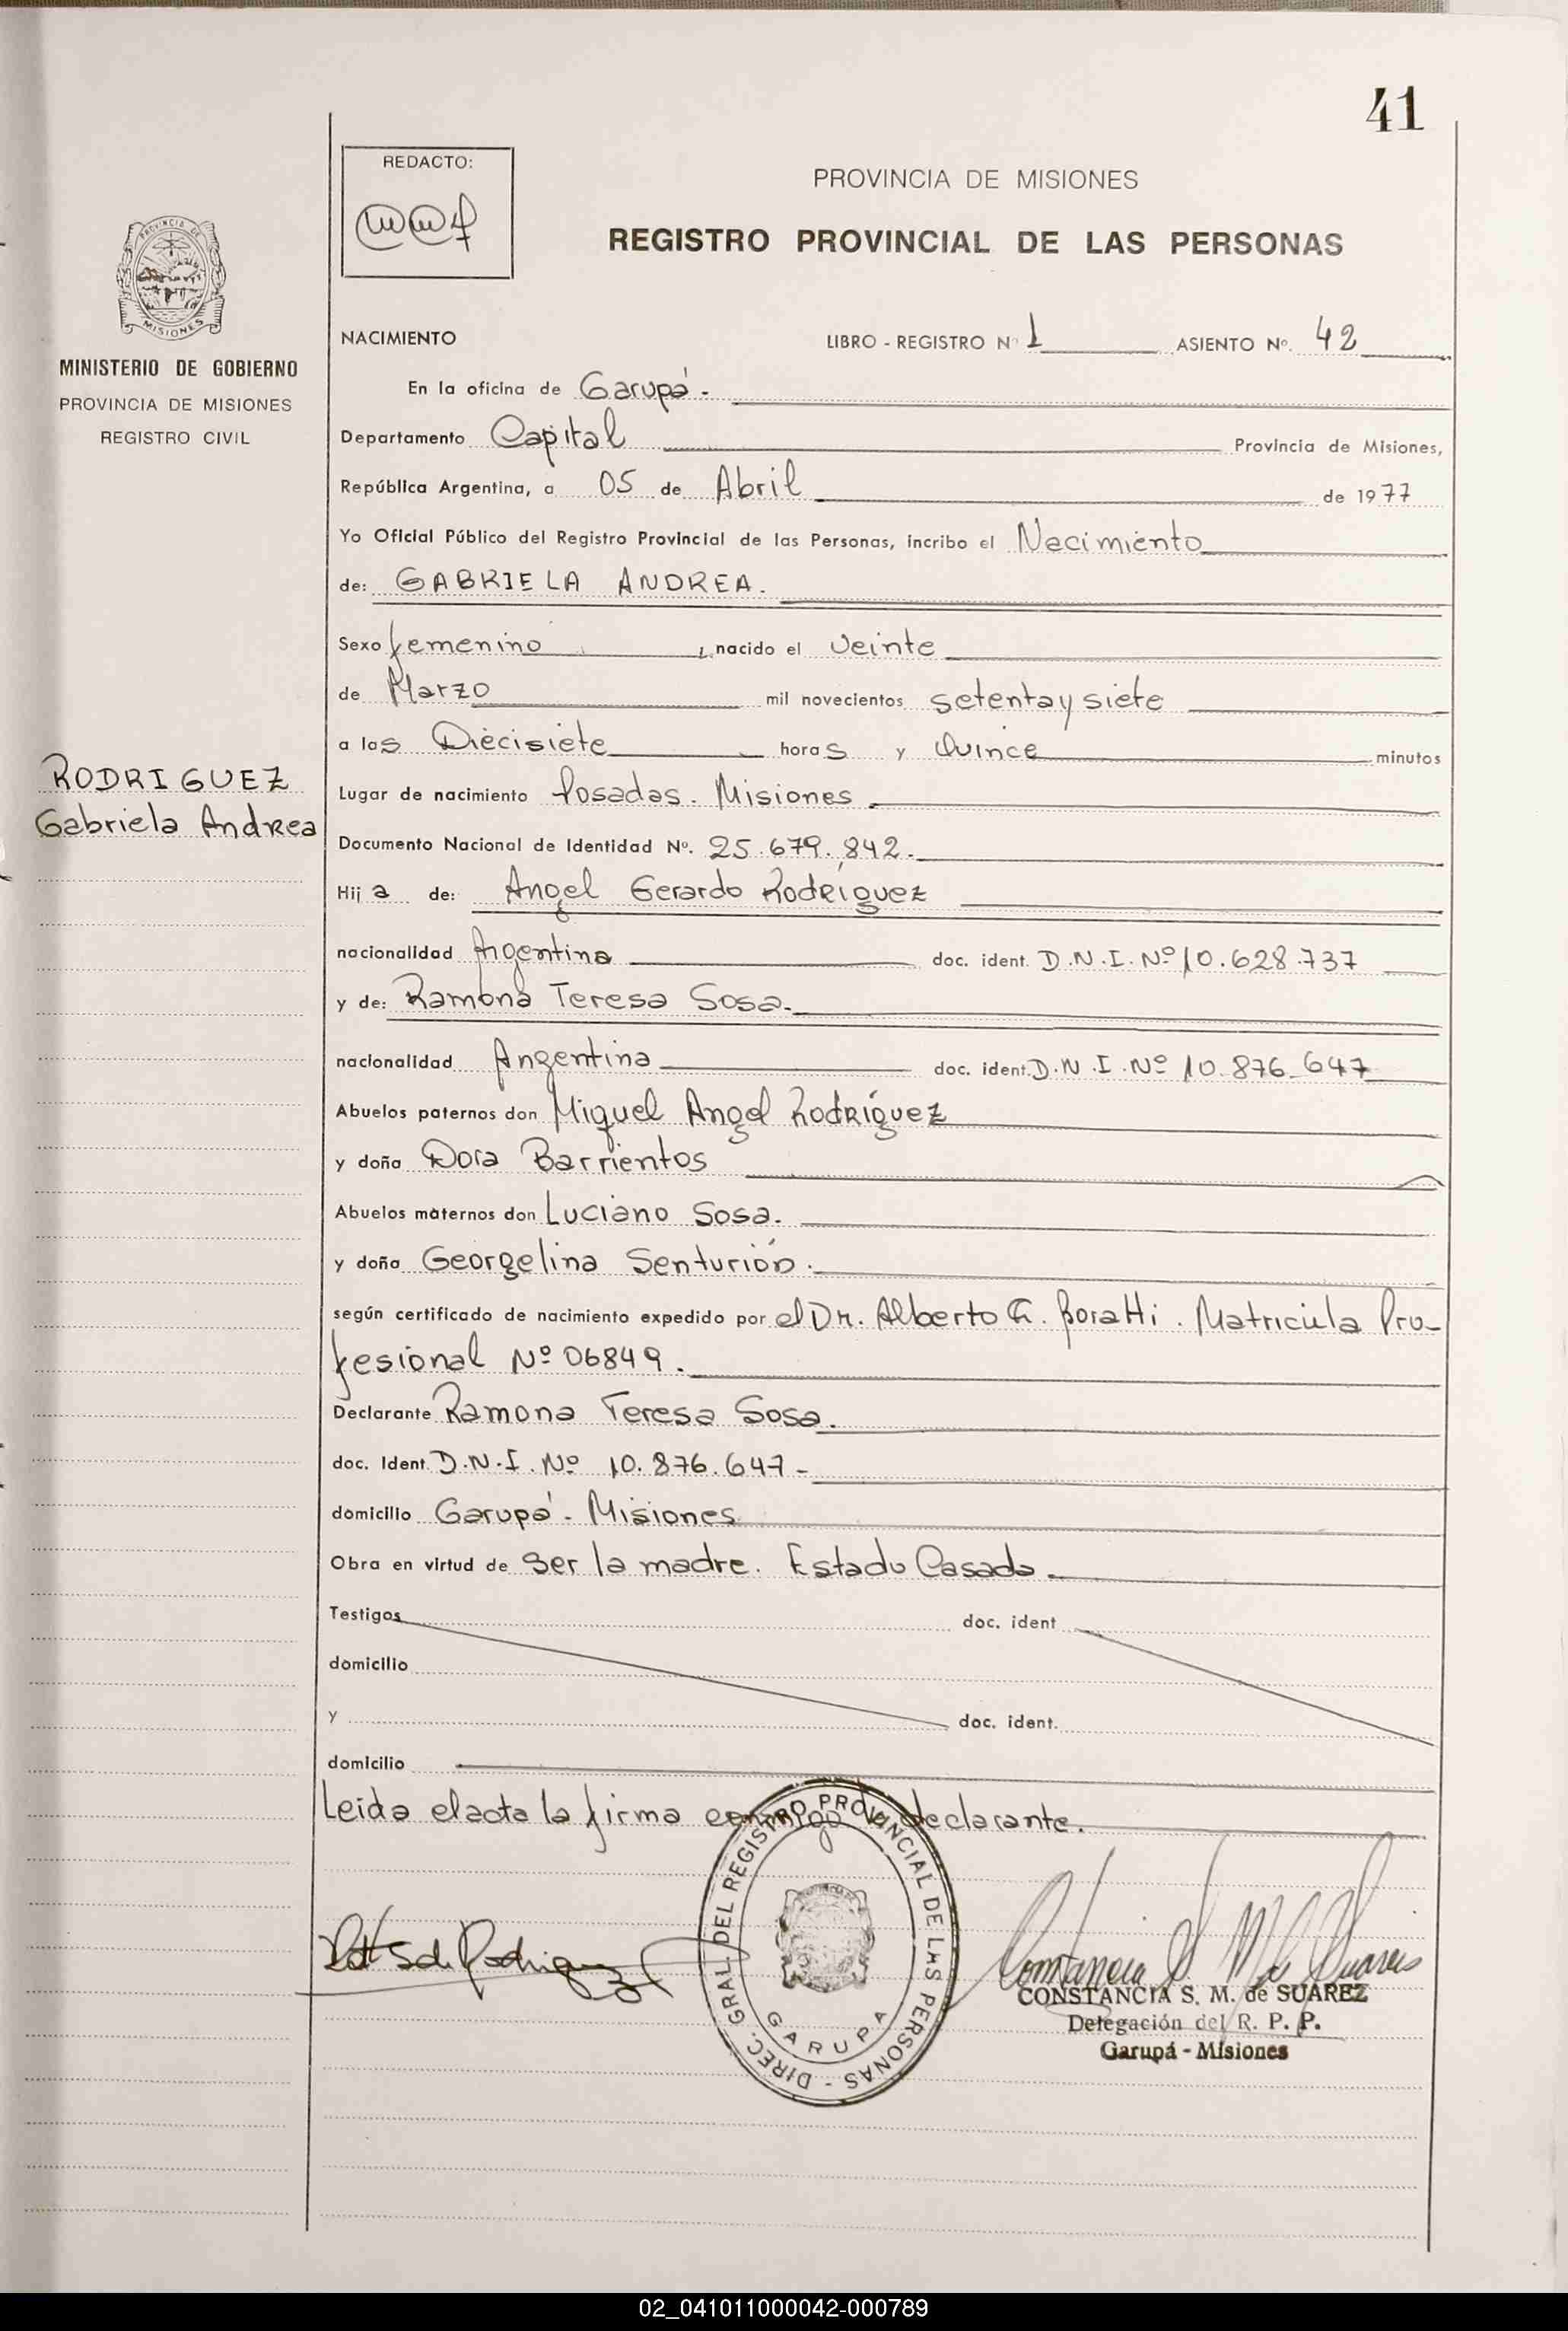 41
REDACTO:
PROVINCIA DE MISIONES
REGISTRO PROVINCIAL DE LAS PERSONAS
PROVINCIA DE
MISIONES
MINISTERIO DE GOBIERNO
PROVINCIA DE MISIONES
REGISTRO CIVIL
NACIMIENTO LIBRO - REGISTRO Nº 1 ASIENTO Nº. 42
En la oficina de Garupá -
Departamento Capital Provincia de Misiones,
República Argentina, a 05 de Abril de 1977
Yo Oficial Público del Registro Provincial de las Personas, incribo el Nacimiento
de: GABRIELA ANDREA.
Sexo femenino, nacido el veinte
de Marzo mil novecientos setenta y siete
a las Diecisiete horas y Quince minutos
RODRIGUEZ
Gabriela Andrea
Lugar de nacimiento Posadas. Misiones
Documento Nacional de Identidad Nº. 25.679.842.
Hija de: Angel Gerardo Rodríguez
nacionalidad Argentina doc. ident. D.N.I. Nº 10.628.737
y de: Ramona Teresa Sosa.
nacionalidad Argentina doc. ident. D.N.I. Nº 10.876.647
Abuelos paternos don Miguel Angel Rodríguez
y doña Dora Barrientos
Abuelos maternos don Luciano Sosa.
y doña Georgelina Senturión.
según certificado de nacimiento expedido por el Dr. Alberto G. Boratti. Matricula Pro-
fesional Nº 06849.
Declarante Ramona Teresa Sosa.
doc. Ident. D.N.I. Nº 10.876.647-
domicilio Garupá - Misiones
Obra en virtud de Ser la madre. Estado Casada.
Testigos doc. ident
domicilio
y doc. ident.
domicilio
Leida el acta la firma conmigo la declarante.
DIREC. GRAL. DEL REGISTRO PROVINCIAL DE LAS PERSONAS -
GARUPA
CONSTANCIA S. M. de SUAREZ
Delegación del R. P. P.
Garupá - Misiones
02_041011000042-000789